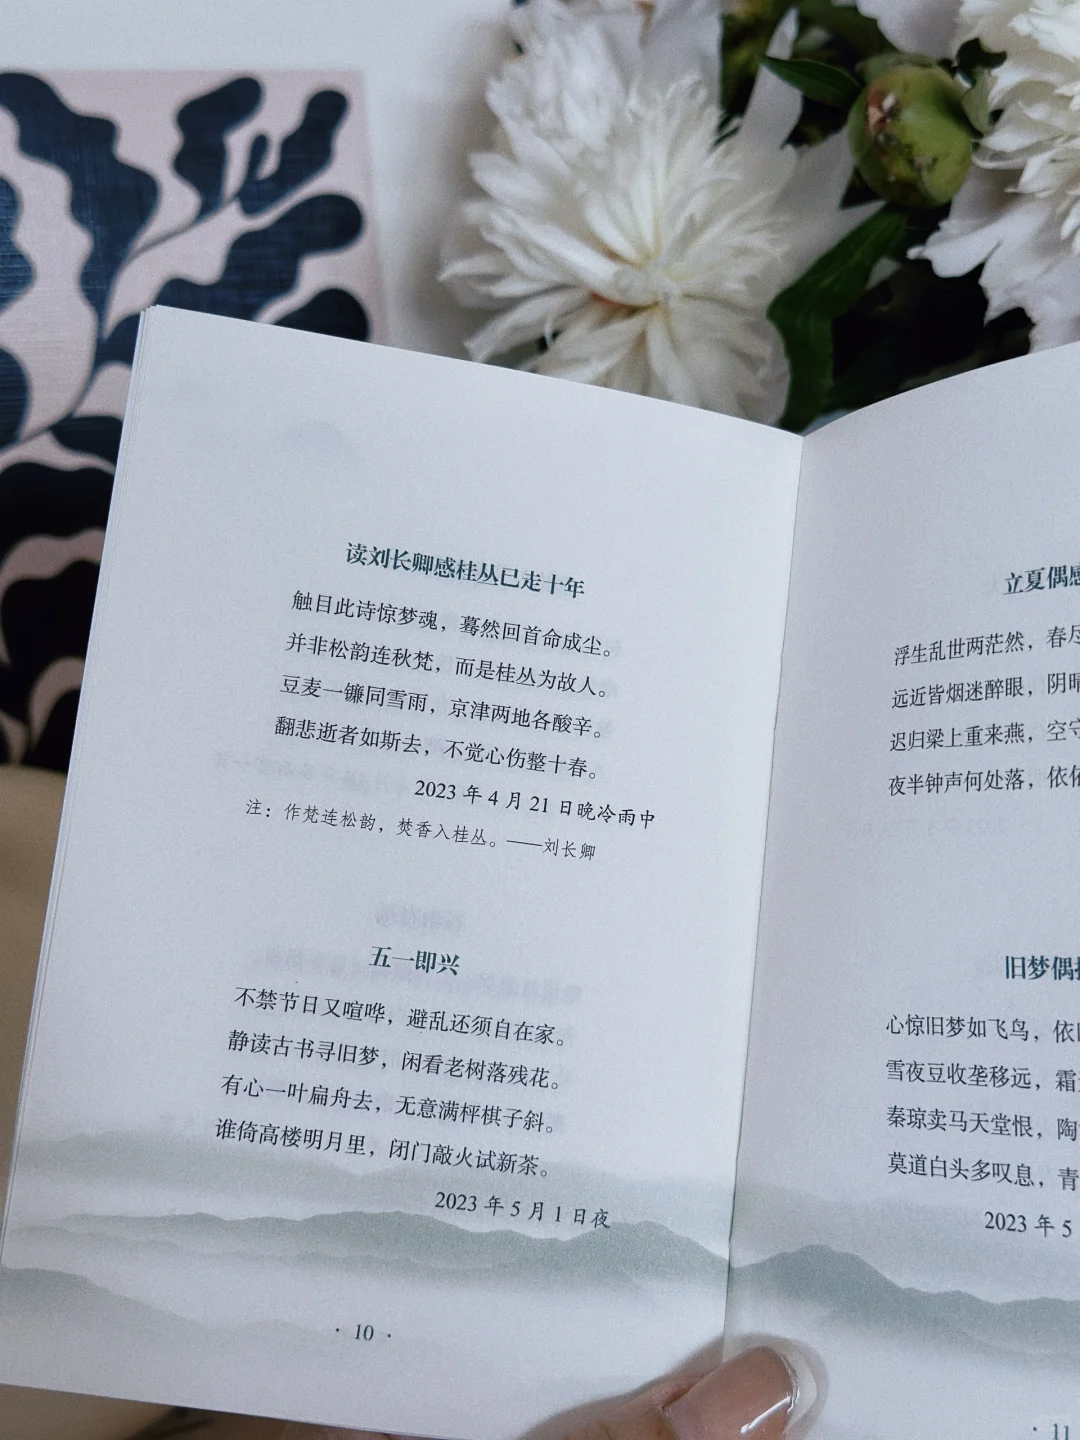 读刘长卿感桂丛已走十年
触目此诗惊梦魂，蓦然回首命成尘。
并非松韵连秋梵，而是桂丛为故人。
豆麦一镰同雪雨，京津两地各酸辛。
翻悲逝者如斯去，不觉心伤整十春。
2023 年 4 月 21 日晚冷雨中
注：作梵连松韵，焚香入桂丛。——刘长卿
五一即兴
不禁节日又喧哗，避乱还须自在家。
静读古书寻旧梦，闲看老树落残花。
有心一叶扁舟去，无意满枰棋子斜。
谁倚高楼明月里，闭门敲火试新茶。
2023 年 5 月 1 日夜
· 10 ·
立夏偶感
浮生乱世两茫然，春尽
远近皆烟迷醉眼，阴晴
迟归梁上重来燕，空守
夜半钟声何处落，依依
旧梦偶
心惊旧梦如飞鸟，依
雪夜豆收垄移远，霜
秦琼卖马天堂恨，陶
莫道白头多叹息，青
2023 年 5
· 11